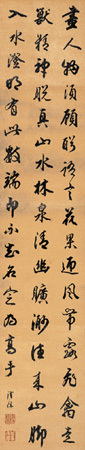 畫人物須顧盼語言花果迎風帶露飛禽走
獸精神脫真山水林泉清幽曠渺往來山腳
入水澄明有此數端即不知名定為高手